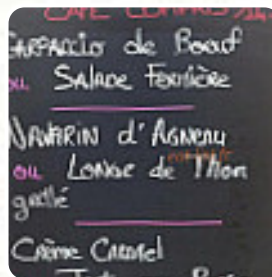 CAFÉ COMPRIS
CARPACCIO de Boeuf
ou SALADE FERMIÈRE
NAVARIN d'AGNEAU
ou LONGE de Thon
grillé
Crème CARAMEL